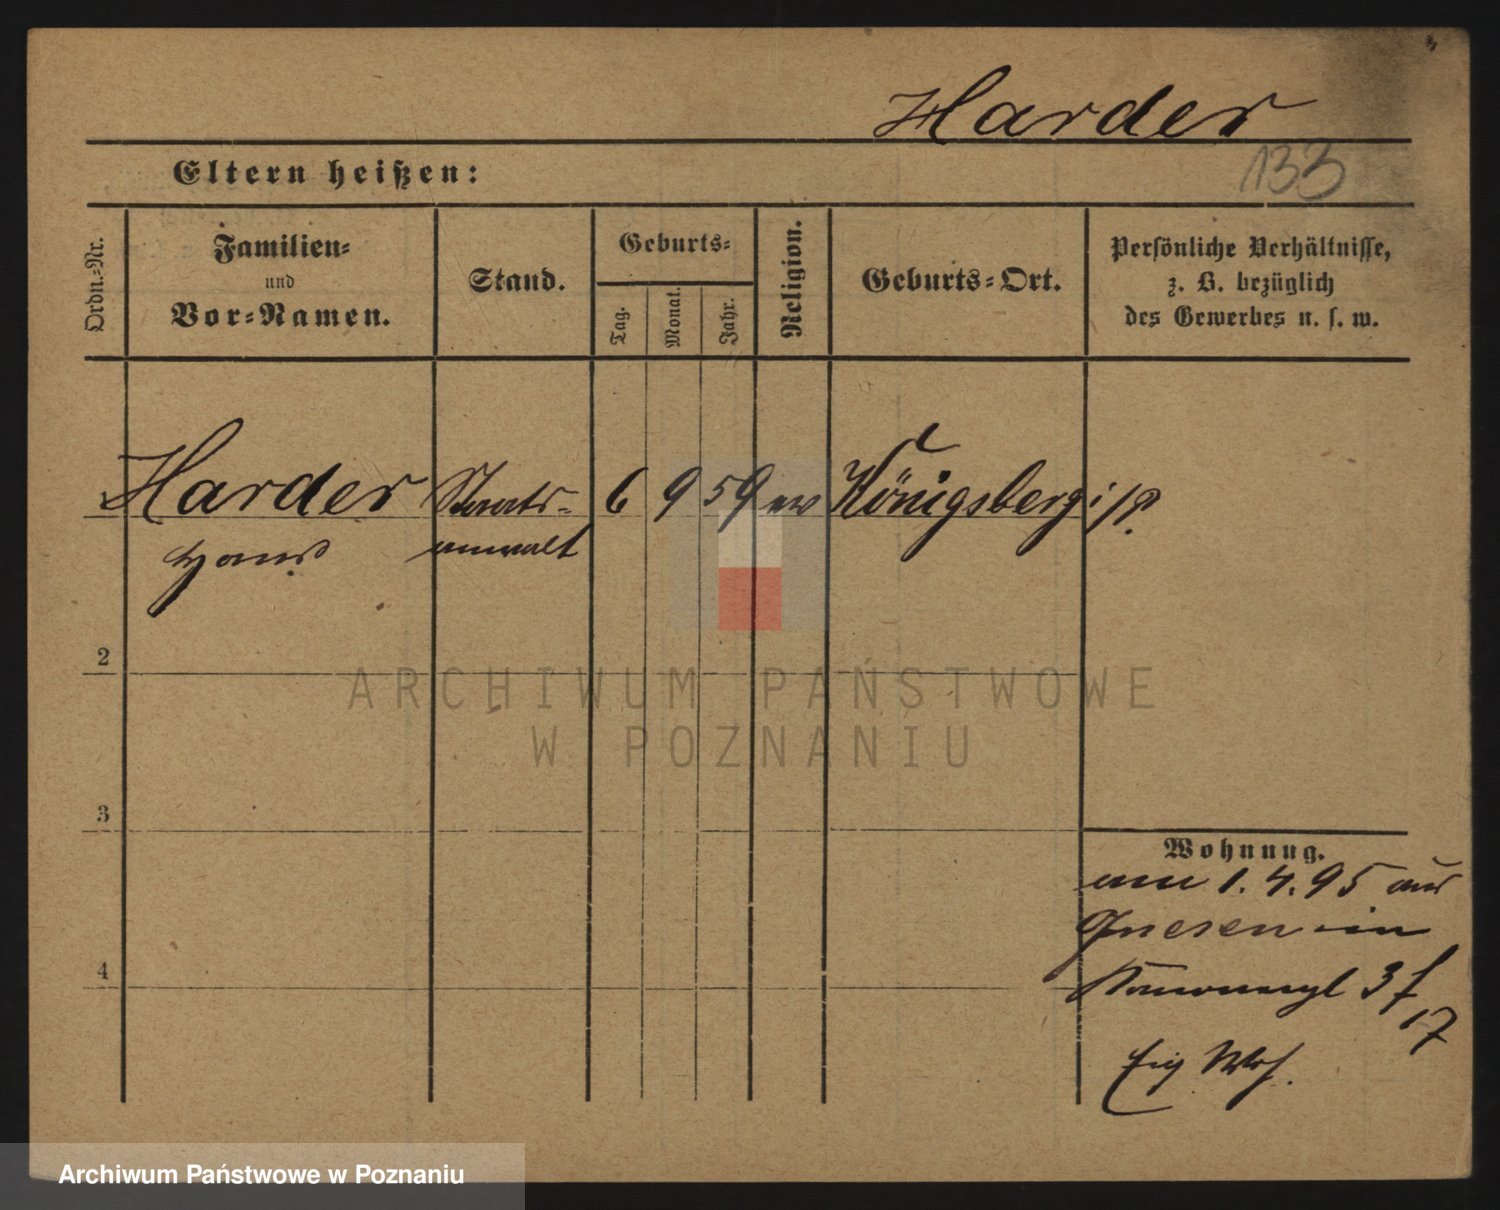 Harder
133
Eltern heißen:
Ordn.-Nr.
Familien-
und
Vor-Namen.
Stand.
Geburts-
Tag.
Monat.
Jahr.
Religion.
Geburts-Ort.
Persönliche Verhältnisse,
z. B. bezüglich
des Gewerbes u. s. w.
Harder Staats- 6 9 59 ev Königsberg i/P.
Hans anwalt
2
ARCHIWUM PAŃSTWOWE
W POZNANIU
3
Wohnung.
am 1.4.95 aus
Gnesen in
4
3
17
Eig
Archiwum Państwowe w Poznaniu